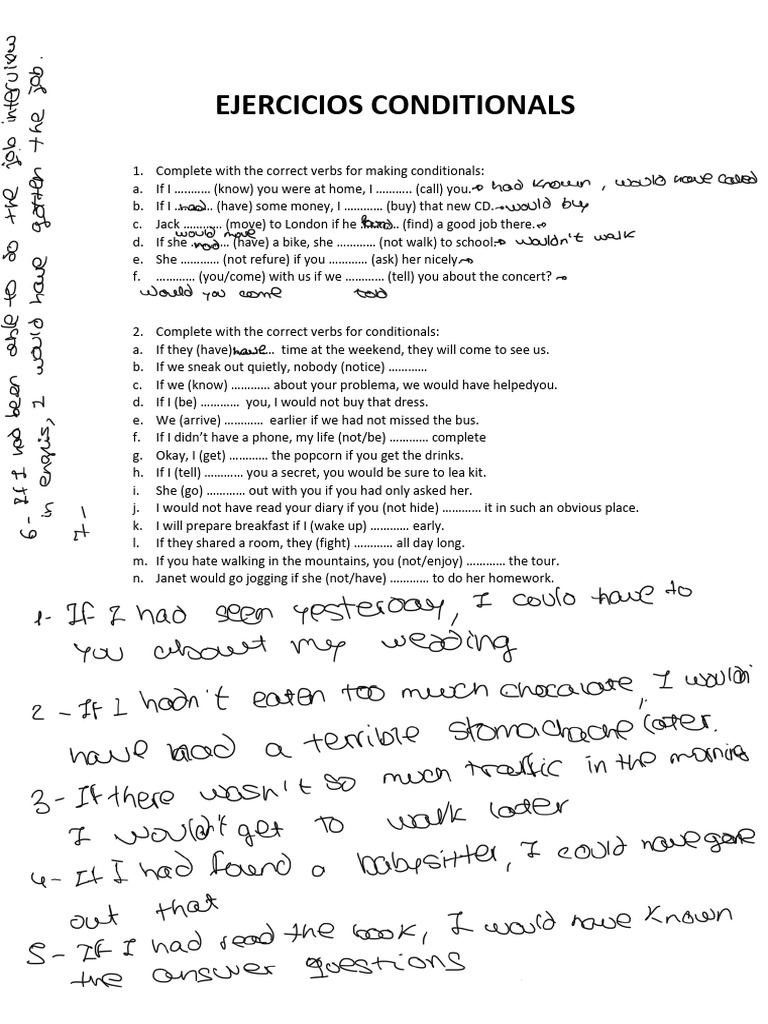 EJERCICIOS CONDITIONALS
1. Complete with the correct verbs for making conditionals:
a. If I ………… (know) you were at home, I ……….. (call) you. had known, would have called
b. If I ..had.. (have) some money, I ………… (buy) that new CD. would buy
c. Jack ………… (move) to London if he found.. (find) a good job there.
would move
d. If she had... (have) a bike, she ………… (not walk) to school. wouldn't walk
e. She ………… (not refure) if you ………… (ask) her nicely
f. ………… (you/come) with us if we ………… (tell) you about the concert?
would you come told
2. Complete with the correct verbs for conditionals:
a. If they (have) have... time at the weekend, they will come to see us.
b. If we sneak out quietly, nobody (notice) …………
c. If we (know) ………… about your problema, we would have helpedyou.
d. If I (be) ………… you, I would not buy that dress.
e. We (arrive) ………… earlier if we had not missed the bus.
f. If I didn't have a phone, my life (not/be) ………… complete
g. Okay, I (get) ………… the popcorn if you get the drinks.
h. If I (tell) ………… you a secret, you would be sure to lea kit.
i. She (go) ………… out with you if you had only asked her.
j. I would not have read your diary if you (not hide) ………… it in such an obvious place.
k. I will prepare breakfast if I (wake up) ………… early.
l. If they shared a room, they (fight) ………… all day long.
m. If you hate walking in the mountains, you (not/enjoy) ………… the tour.
n. Janet would go jogging if she (not/have) ………… to do her homework.
1- If I had seen yesterday, I could have to
you about my wedding
2 - If I hadn't eaten too much chocolate, I wouldn
have had a terrible stomachache later.
3- If there wasn't so much traffic in the morning
I wouldn't get to walk later
4- If I had found a babysitter, I could have gone
out that
5- If I had read the book, I would have known
the answer questions
6- If I had been able to do the job interview
in englis, I would have gotten the job.
7-